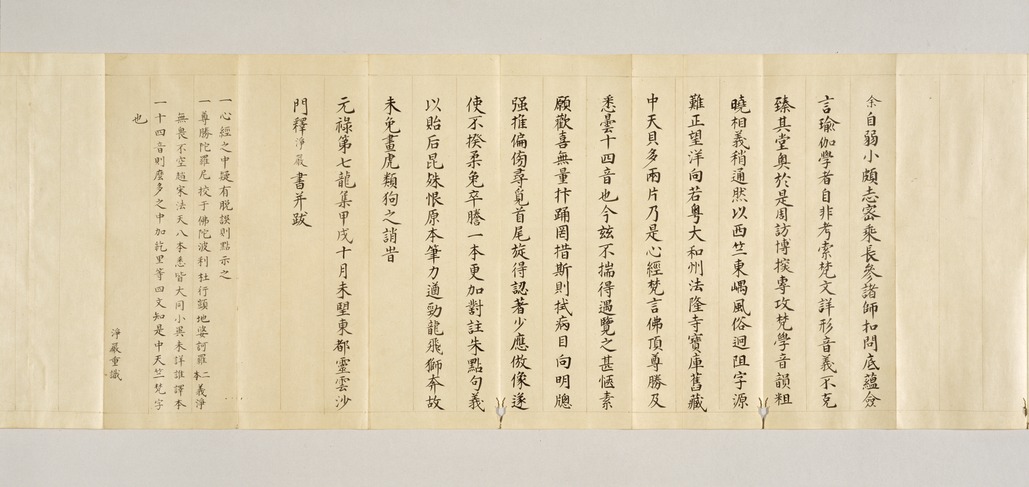 余自弱小頗志密乘長參諸師扣問底蘊僉
言瑜伽學者自非考索梵文詳形音義不克
臻其堂奧於是周訪博搜專攻梵學音韻粗
曉相義稍通然以西竺東嵎風俗迥阻字源
難正望洋向若粤大和州法隆寺寶庫舊藏
中天貝多兩片乃是心經梵言佛頂尊勝及
悉曇十四音也今玆不揣得遇覽之甚愜素
願歡喜無量抃踊罔措斯則拭病目向明牕
强推偏傍尋覓首尾旋得認著少應倣像遂
使不揆柔兔卒謄一本更加對註朱點句義
以貽后昆殊恨原本筆力遒勁龍飛獅奔故
未免畫虎類狗之誚耳
元祿第七龍集甲戌十月未塱東都靈雲沙
門釋淨嚴書并跋
一心經之中疑有脱誤則點示之
一尊勝陀羅尼挍于佛陀波利杜行顗地婆訶羅二本義淨
無畏不空趙宋法天八本悉皆大同小異未詳誰譯本
一十四音則麽多之中加紇里等四文知是中天竺梵字
也
淨嚴重識